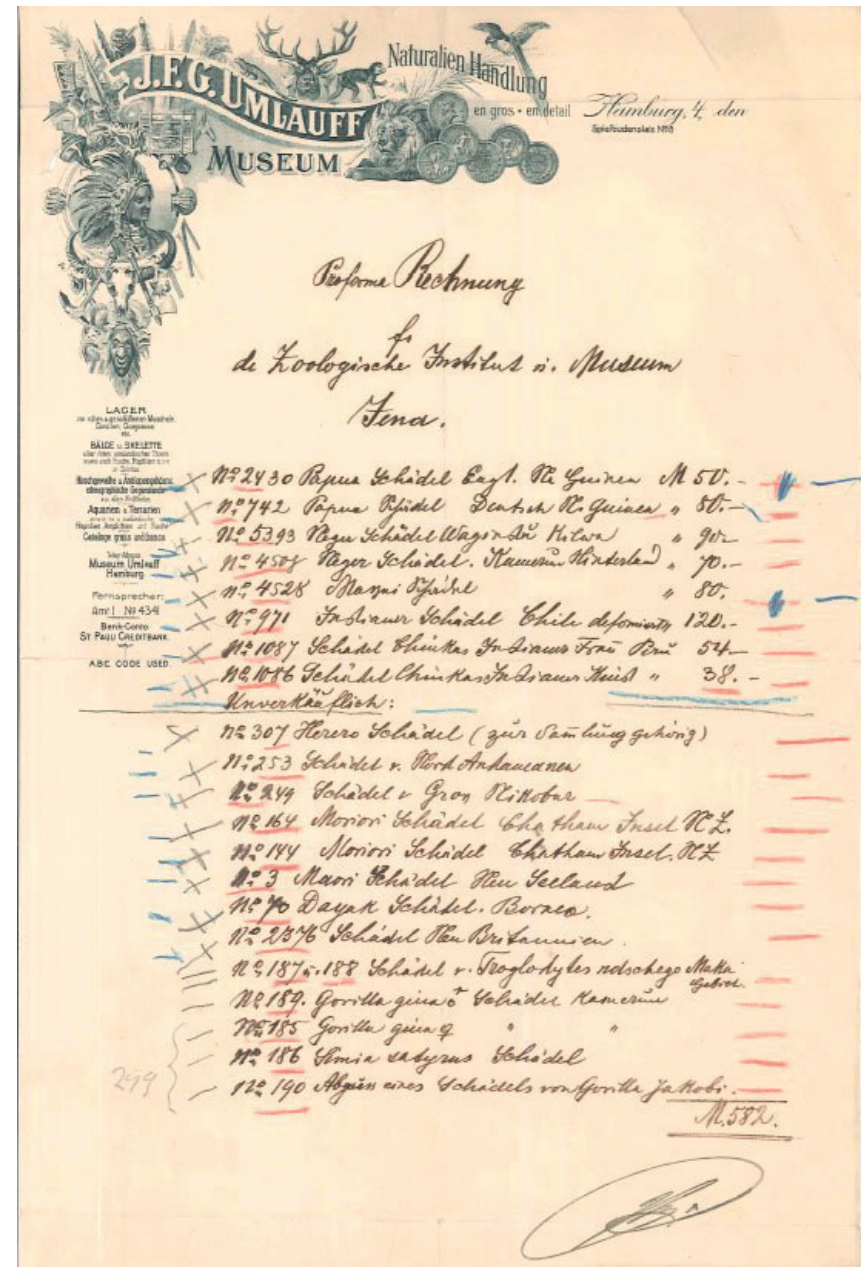 J.F.G. UMLAUFF
MUSEUM
Naturalien Handlung
en gros + en detail
Hamburg, 4, den
Spielbudenplatz Nº8
Proforma Rechnung
fr
de Zoologische Institut u. Museum
Jena.
LAGER
etc.
BÄLGE u. SKELETTE
Aquarien u. Terrarien
Cataloge gratis und franco
Museum Umlauff
Hamburg
Fernsprecher:
Amt I Nº 4341
Bank-Conto:
ST. PAULI CREDITBANK
A.B.C. CODE USED.
Nº 2430 Papua Schädel Engl. N. Guinea M 50.-
Nº 742 Papua Schädel Deutsch N. Guinea " 80.-
Nº 5393 Neger Schädel Kilwa " 90.-
Nº 4508 Neger Schädel. Kamerun Hinterland " 70.-
Nº 4528 Schädel " 80.
Nº 971 Indianer Schädel Chile deformiert 120.-
Nº 1087 Schädel Chinkas Indianer Frau Peru 54.-
Nº 1086 Schädel Chinkas Indianer Kind " 38.-
Unverkäuflich:
Nº 307 Herero Schädel (zur Sammlung gehörig)
Nº 253 Schädel v. Nord Andamanen
Nº 249 Schädel v Gros Nikobar
Nº 164 Moriori Schädel Chatham Insel N.Z.
Nº 144 Moriori Schädel Chatham Insel. N.Z
Nº 3 Maori Schädel Neu Seeland
Nº 70 Dayak Schädel. Borneo.
Nº 2376 Schädel Neu Britannien.
Nº 187 u. 188 Schädel v. Troglodytes ndschego Maka
Gebiet.
Nº 189. Gorilla gina ♂ Schädel Kamerun
Nº 185 Gorilla gina ♀ " "
Nº 186 Simia satyrus Schädel
299
Nº 190 Abguss eines Schädels von Gorilla Jakobi.
M. 582.